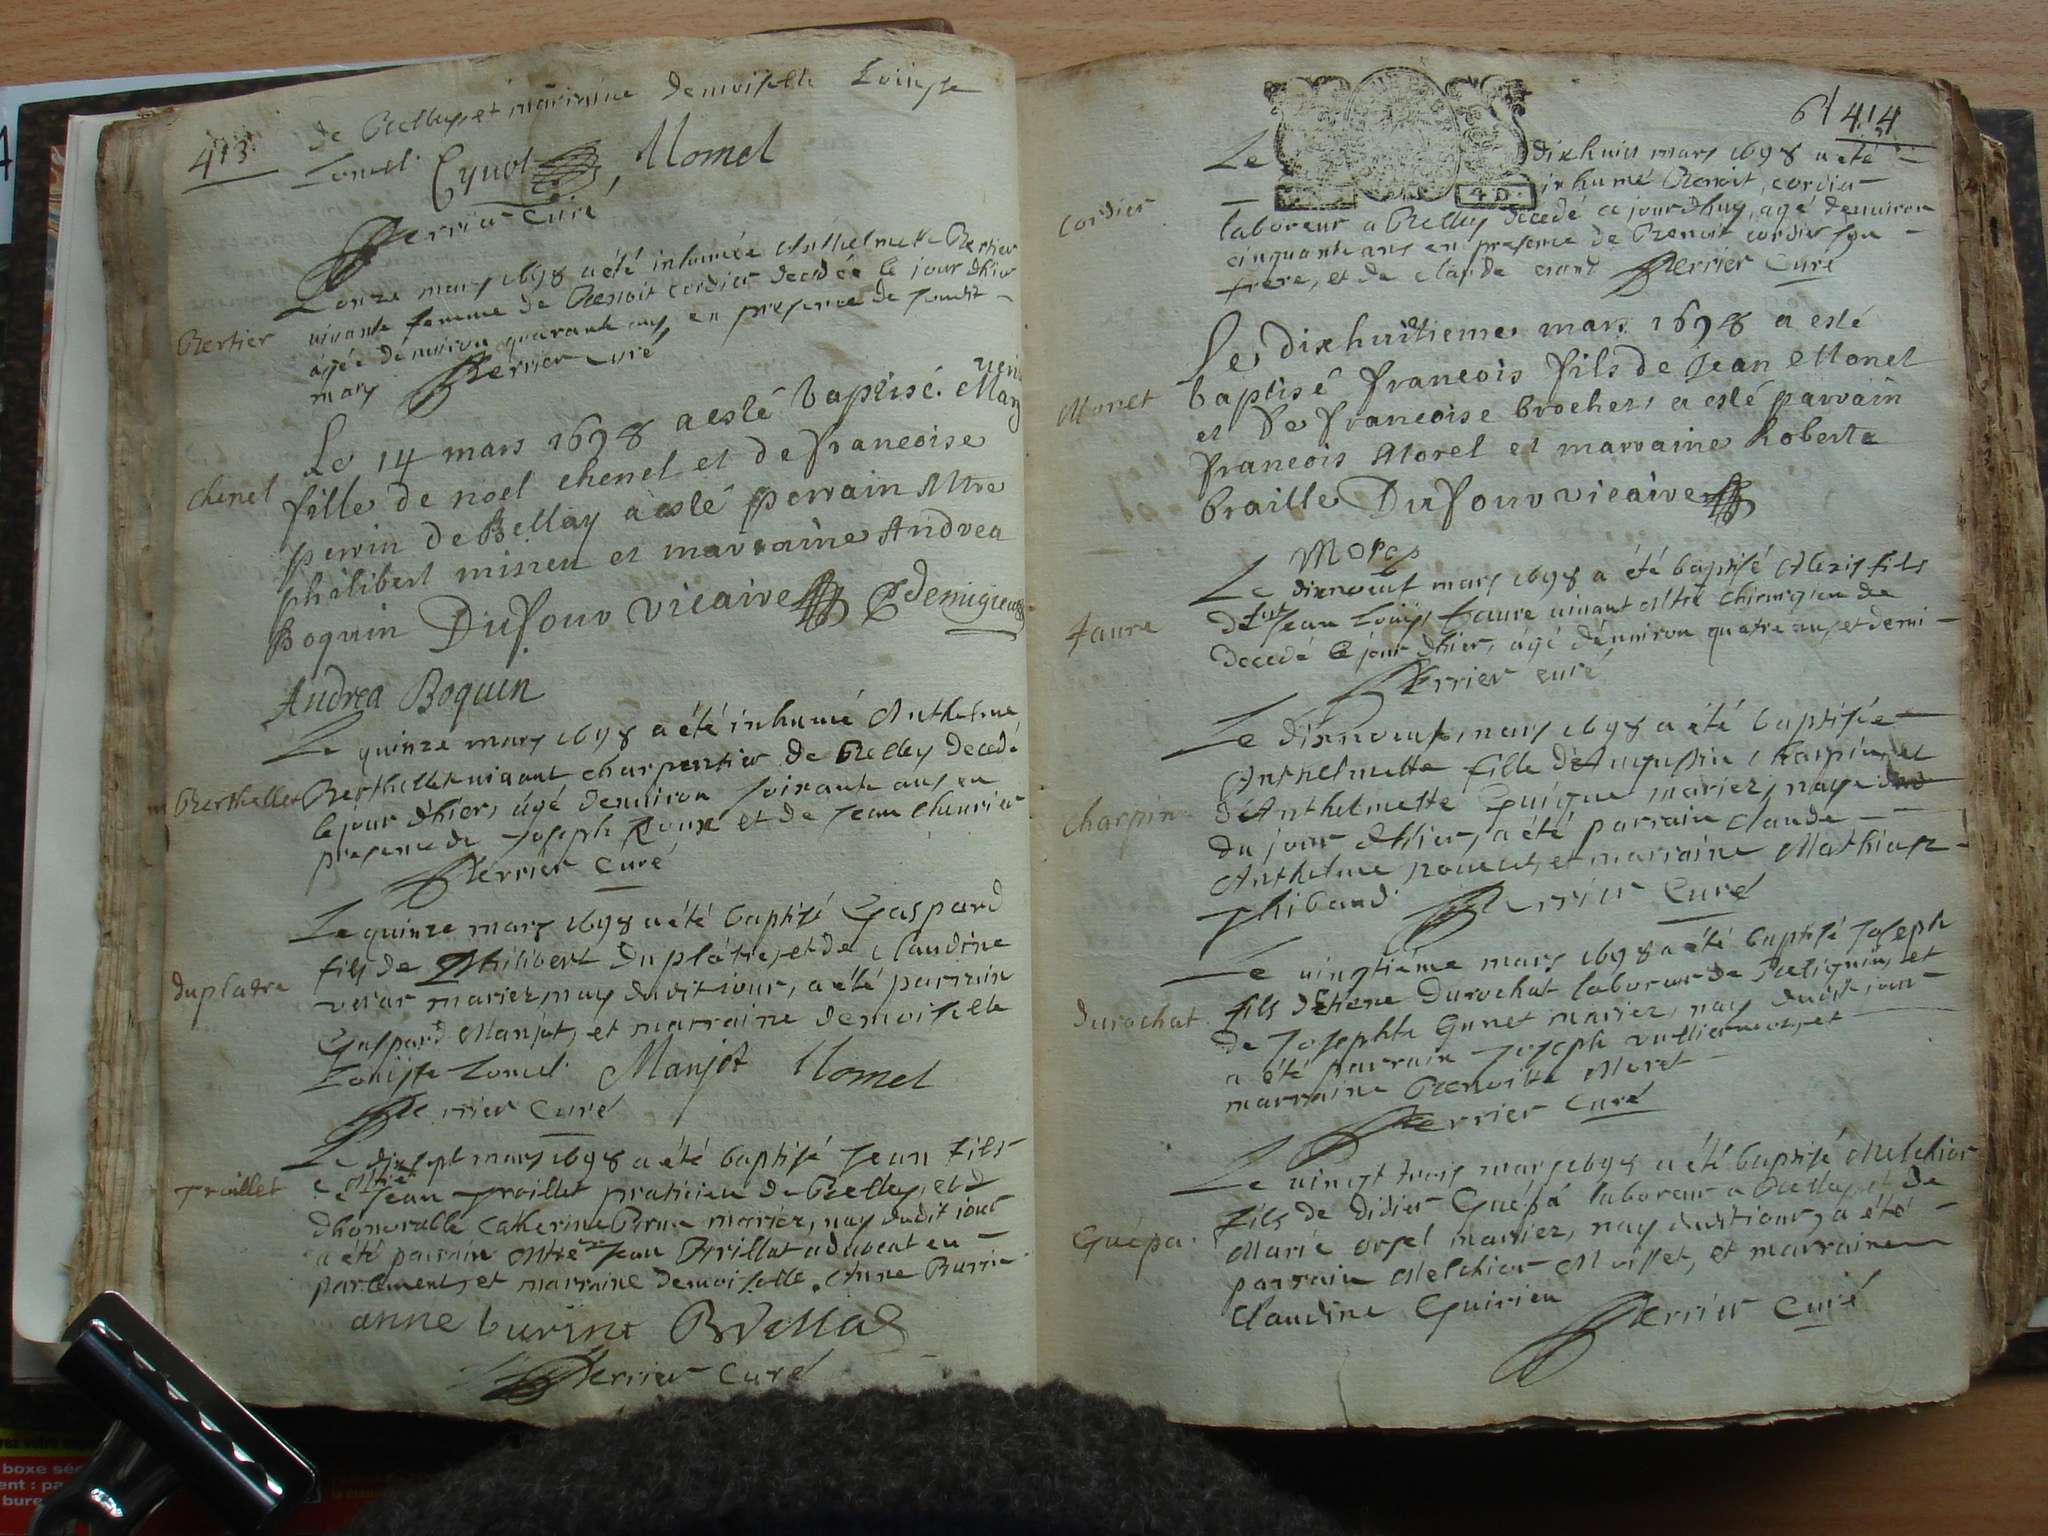 413
de Belley, et marraine demoiselle Louise
Lomel Cynot LLomel
Perrier Curé
Bertier
L'onze mars 1698 a été inhumée Anthelmette Bertier
vivante femme de Benoit Cordier decedée le jour dhier
agée denviron quarante ans, en presence de sondit
mary Perrier curé
Chenel
Le 14 mars 1698 a esté baptisé Mary
fille de noel chenel et de francoise
perrin de Bellay a esté perrain Mtre
philibert et marraine Andrea
Boquin Dufour vicaire
Andrea Boquin
Berthellet
Le quinze mars 1698 a été inhumé Anthelme
Berthellet vivant charpentier de Belley decedé
le jour dhier, agé denviron soixante ans en
presence de Joseph Roux et de Jean
Perrier Curé
duplatre
Le quinze mars 1698 a été baptisé Gaspard
fils de Philibert duplatre, et de Claudine
mariez, nay dudit jour, a été parrain
Gaspard Manjot, et marraine demoiselle
Louise Lomel Manjot LLomel
Perrier Curé
Trillet
Le dix sept mars 1698 a été baptisé Jean fils
de Jean praticien de Belley, et
dhonorable Catherine mariez, nay dudit jour
a été parrain Mtre Jean advocat en
parlement, et marraine demoiselle Anne
anne burint
Perrier Curé
61 414
4 D.
Cordier
Le dixhuit mars 1698 a été
inhumé Benoit cordier
laboreur a Belley decedé ce jourdhuy, agé denviron
cinquante ans en presence de Benoit cordier son
frere, et de claude Perrier Curé
Monet
Le dixhuitieme mars 1698 a esté
baptisé francois fils de Jean Monet
et de francoise brochet, a esté parrain
francois Morel et marraine Roberte
braille Dufour vicaire
Mors
Faure
Le dixneuf mars 1698 a été baptisé Alexis fils
de feu Jean Louys faure vivant Mtre Chirurgien de
decedé le jour dhier, agé denviron quatre ans et demi
Perrier curé
Charpin
Le dixneuf mars 1698 a été baptisée
Anthelmette fille d'Augustin Charpin, et
d'Anthelmette Guigue mariez, naye
du jour dhier, a été parrain claude
Anthelme et marraine Mathiaz
Thibaud Perrier Curé
durochat
Le vingtiéme mars 1698 a été baptisé Joseph
fils d'Etiene Durochat laboreur de et
de Josephte Gunet mariez, nay dudit jour
a été parrain Joseph et
marraine Benoitte Moret
Perrier Curé
Guépa
Le vingt trois mars 1698 a été baptisé Melchior
fils de Didier Guépa laboreur a Belley, et de
Marie orsel mariez, nay dudit jour, a été
parrain Melchior et marraine
Claudine Guirieu Perrier Curé